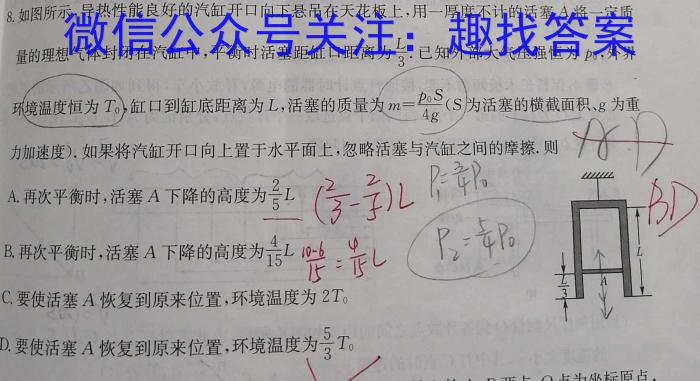 8.如图所示,导热性能良好的汽缸开口向下悬吊在天花板上,用一厚度不计的活塞A将一定质
微信公众号关注：趣找答案
量的理想气体封闭在汽缸中,平衡时活塞距缸口距离为L/3.已知外部大气压强恒为p₀,外界
环境温度恒为T₀,缸口到缸底距离为L,活塞的质量为m=p₀S/4g(S为活塞的横截面积、g为重
力加速度).如果将汽缸开口向上置于水平面上,忽略活塞与汽缸之间的摩擦.则
A.再次平衡时,活塞A下降的高度为2/5L
(2/3-2/5)L
P₁=3/4P₀
B.再次平衡时,活塞A下降的高度为4/15L
10-6/15=4/15L
P₂=5/4P₀
C.要使活塞A恢复到原来位置,环境温度为2T₀
D.要使活塞A恢复到原来位置,环境温度为5/3T₀
BD
L
L/3
A
点为坐标原点,